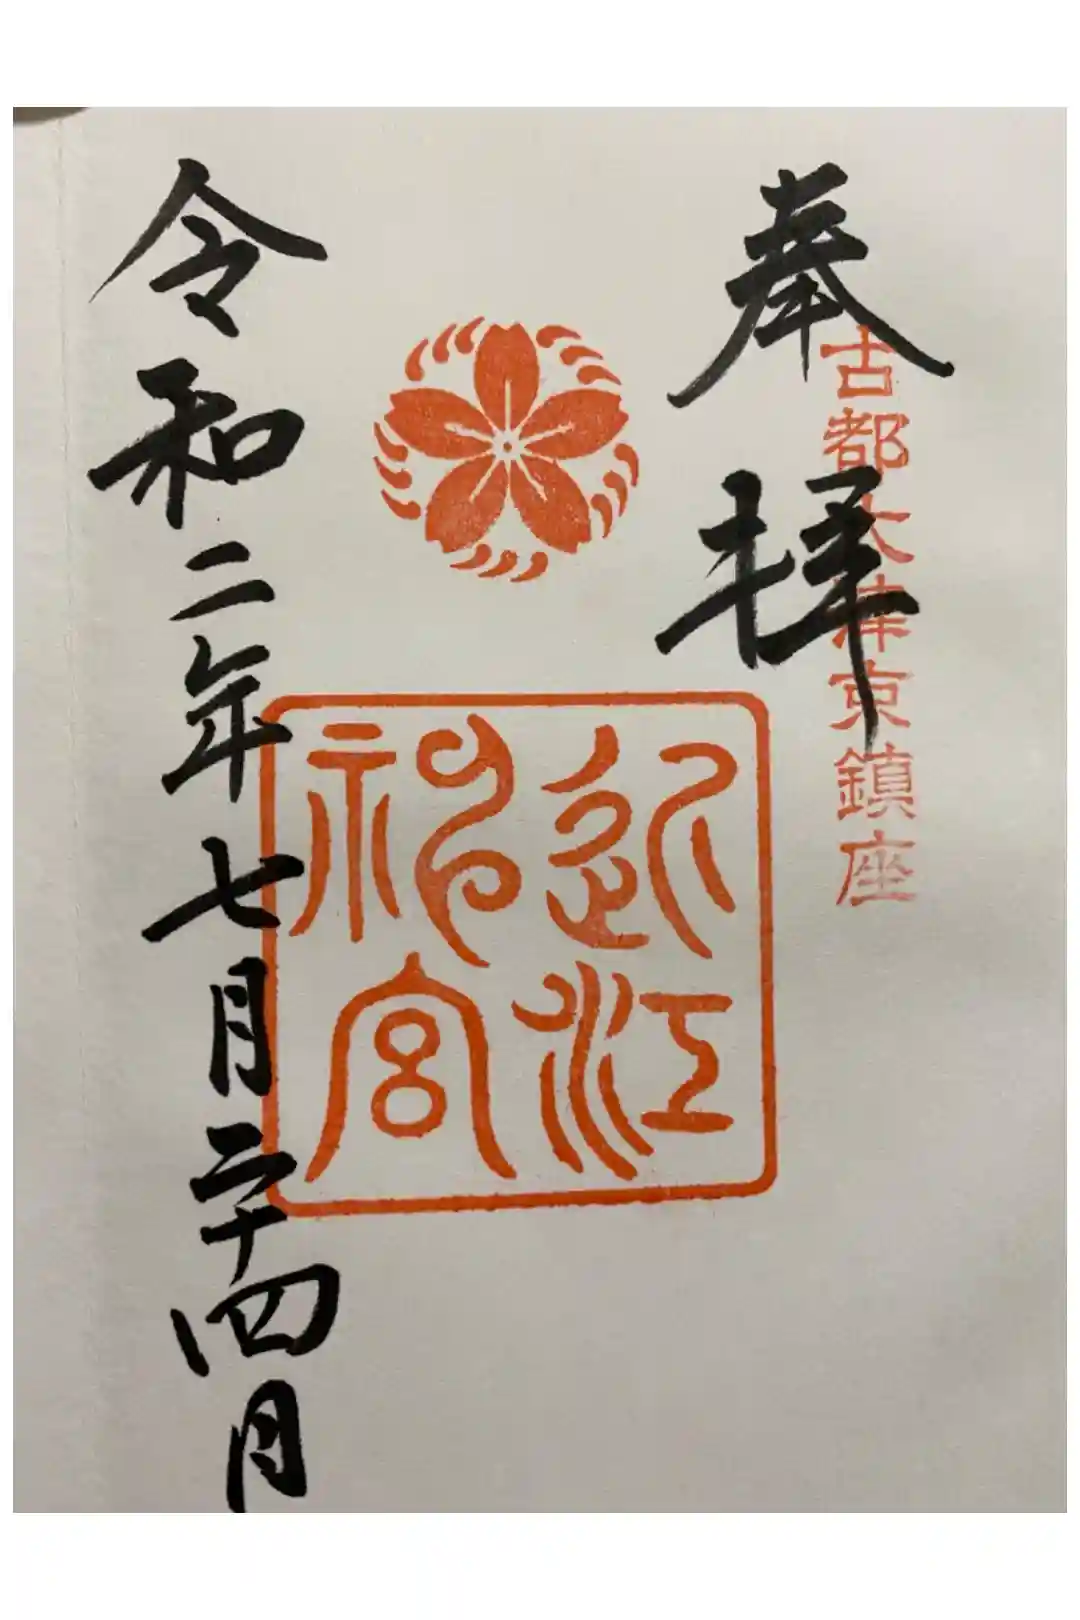 奉拝
古都大津京鎮座
近江
神宮
令和二年七月二十四日